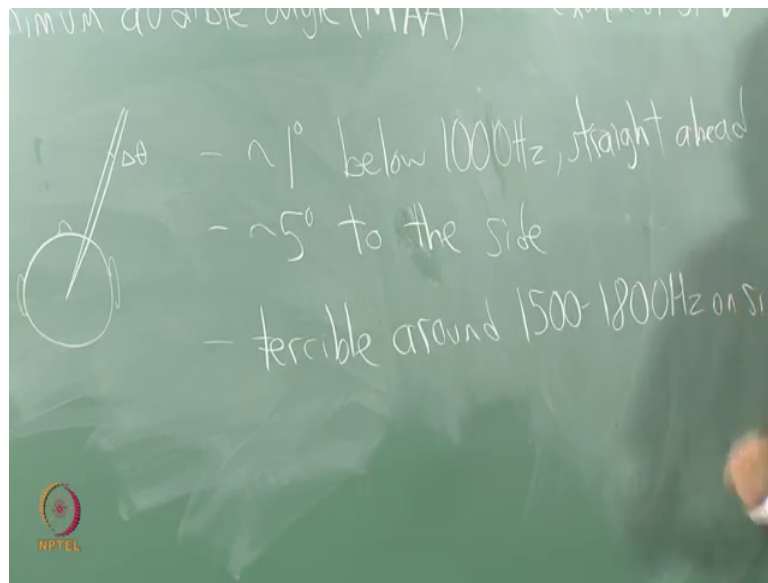 nimum audible angle (MAA)
Δθ
- ~1° below 1000Hz, straight ahead
- ~5° to the side
- terrible around 1500-1800Hz on si
NPTEL